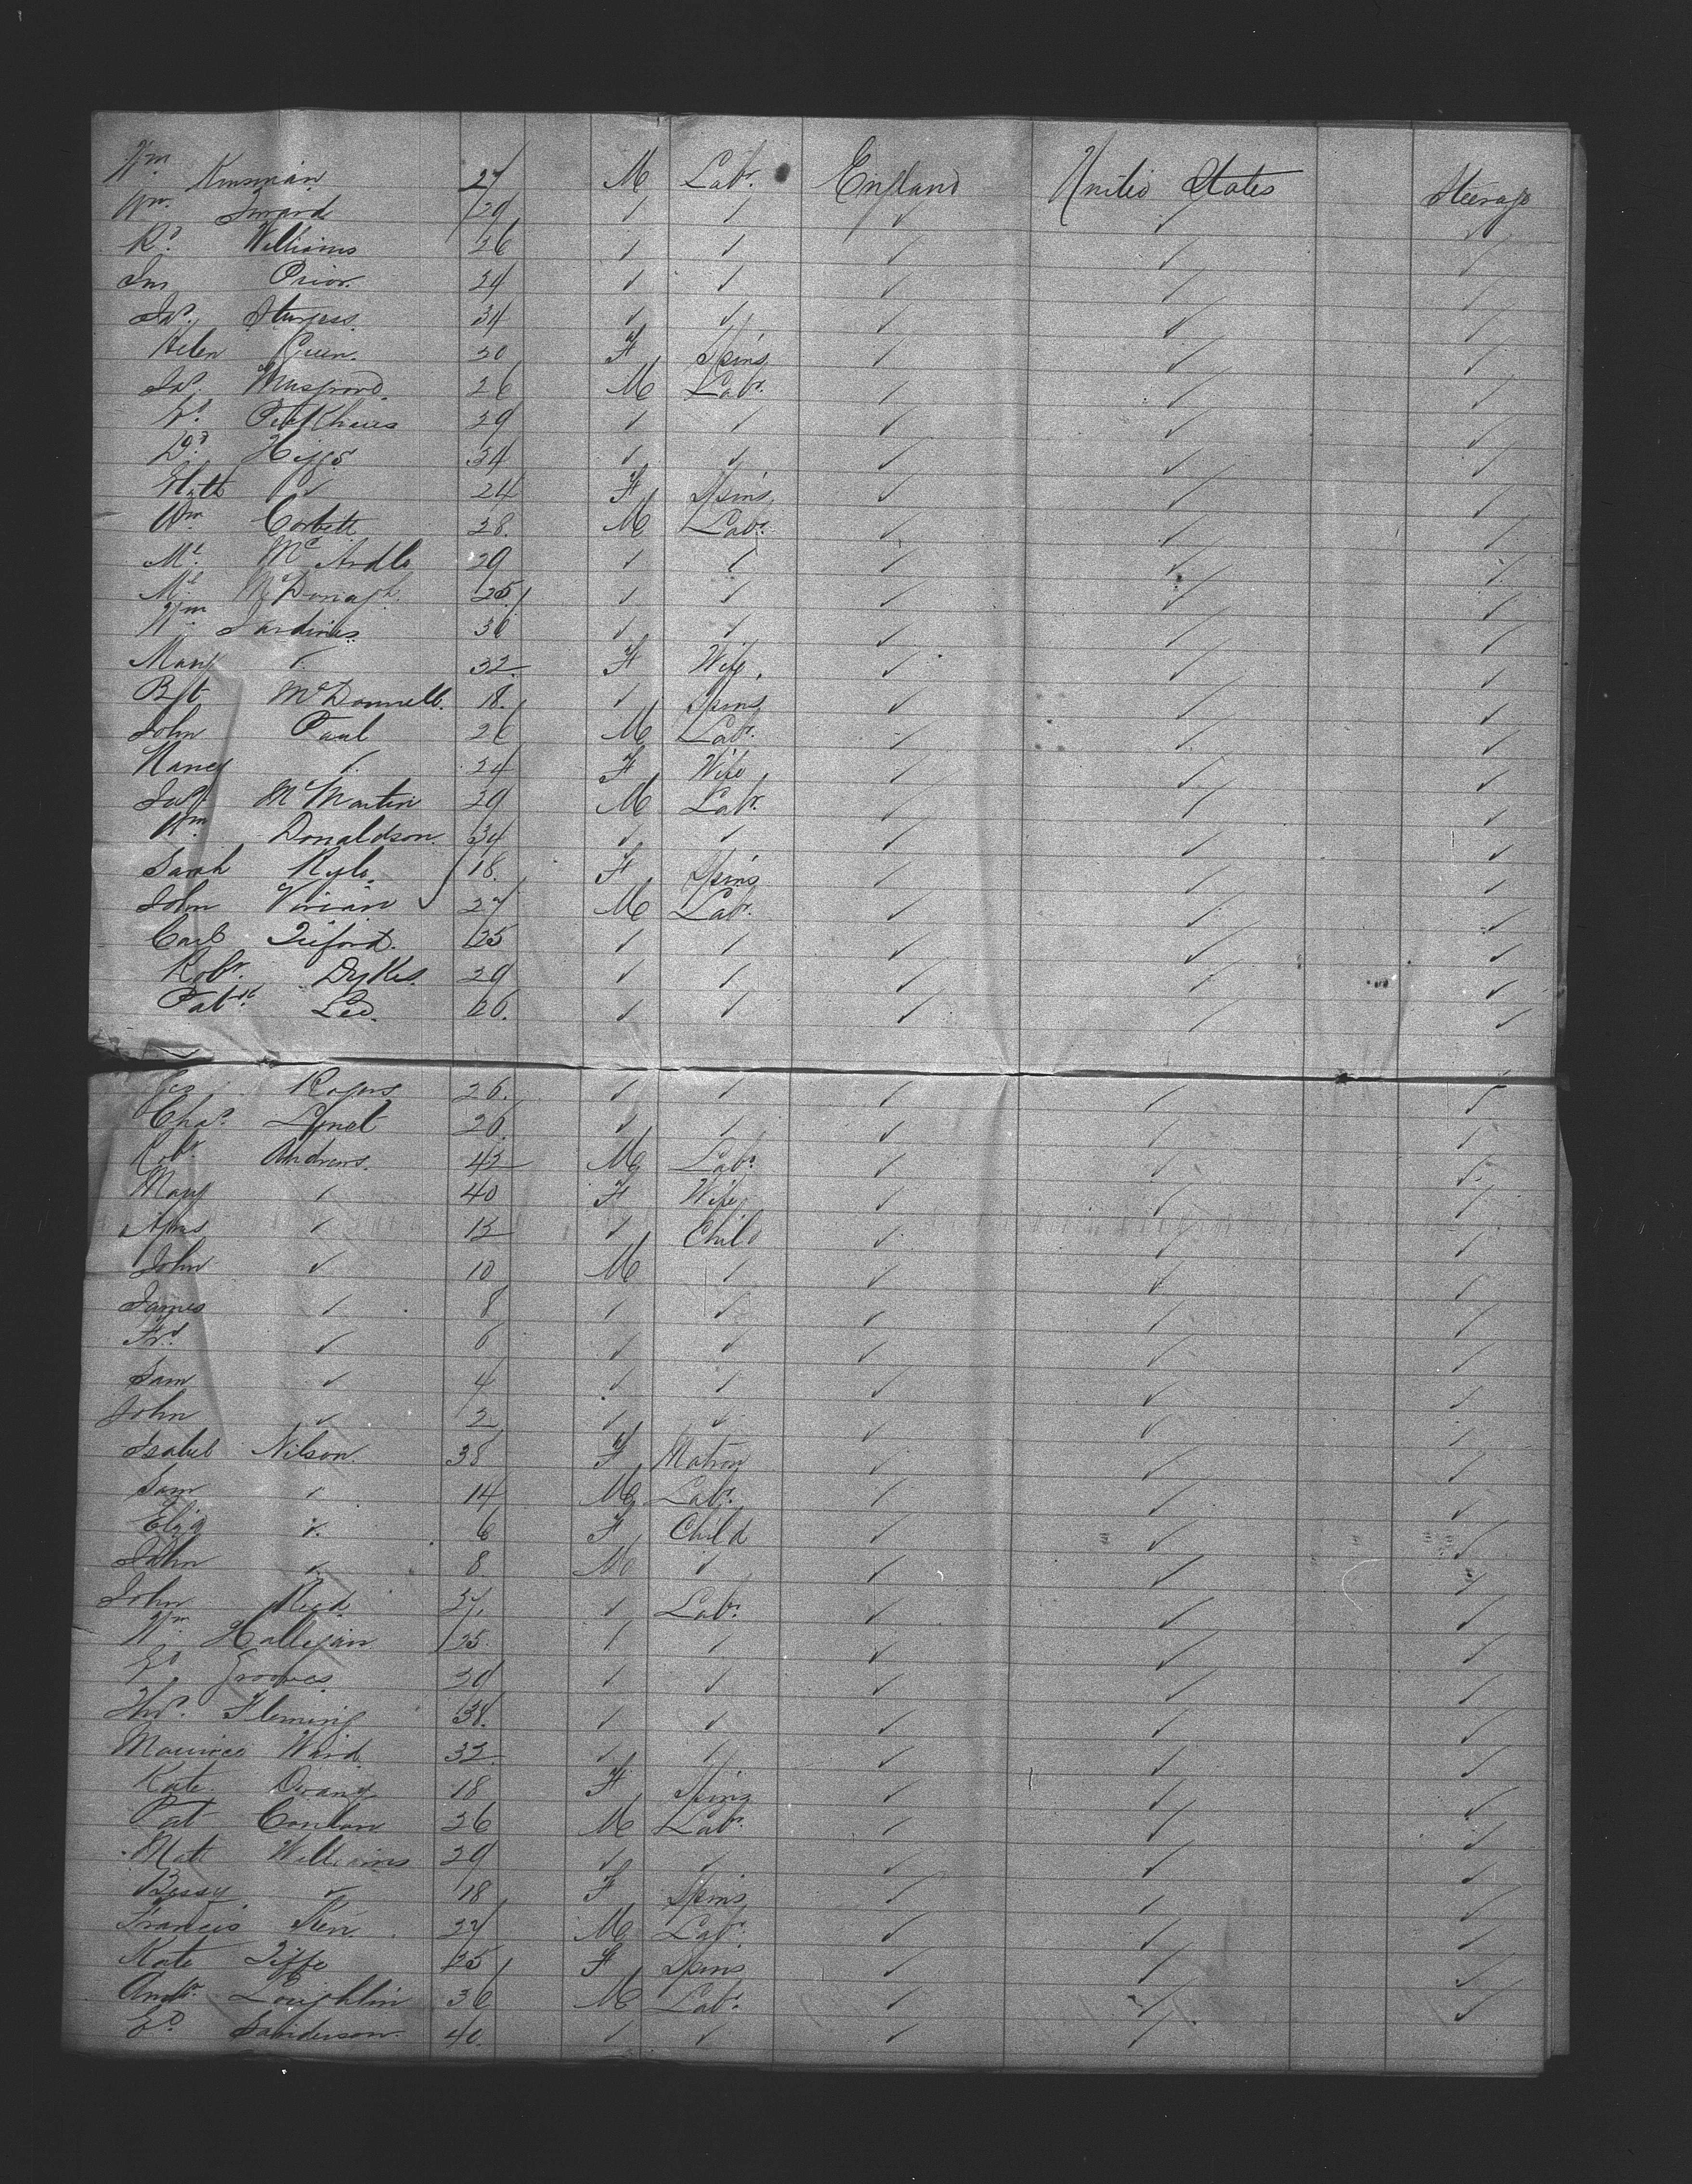 Wm Kinsman 27 M Labr. England United States Steerage
Wm. Inward 29 ✓ ✓ ✓ ✓ ✓
Rd. Williams 26 ✓ ✓ ✓ ✓ ✓
Jno Prior 24 ✓ ✓ ✓ ✓ ✓
Jas. Sturgess 34 ✓ ✓ ✓ ✓ ✓
Helen Green 20 F Spins ✓ ✓ ✓
Jas. Musgrove 26 M Labr. ✓ ✓ ✓
29 ✓ ✓ ✓ ✓ ✓
Dd. Higgs 34 ✓ ✓ ✓ ✓ ✓
✓ 24 F Spins ✓ ✓ ✓
Wm Corbett 28. M Labr. ✓ ✓ ✓
Ml. McArdle 29 ✓ ✓ ✓ ✓ ✓
Ml. McDonagh 25 ✓ ✓ ✓ ✓ ✓
Wm Jardines 36 ✓ ✓ ✓ ✓ ✓
Mary ✓ 32 F Wife ✓ ✓ ✓
Bgt McDonnell. 18. ✓ Spins ✓ ✓ ✓
John Paul 26 M Labr. ✓ ✓ ✓
Nancy ✓ 24 F Wife ✓ ✓ ✓
Jas. McMartin 29 M Labr. ✓ ✓ ✓
Wm Donaldson 34 ✓ ✓ ✓ ✓ ✓
Sarah Kyle 18. F Spins ✓ ✓ ✓
John Vivian 27 M Labr. ✓ ✓ ✓
Carl 25 ✓ ✓ ✓ ✓ ✓
Robt. Dykes. 29 ✓ ✓ ✓ ✓ ✓
Patrk. Lee. 26. ✓ ✓ ✓ ✓ ✓
Rogers 26. ✓ ✓ ✓ ✓ ✓
Chas. 20. ✓ ✓ ✓ ✓ ✓
Robt. Andrews. 42 M Labr. ✓ ✓ ✓
Mary ✓ 40 F Wife ✓ ✓ ✓
Agnes ✓ 12 ✓ Child ✓ ✓ ✓
John ✓ 10 M ✓ ✓ ✓ ✓
James ✓ 8 ✓ ✓ ✓ ✓ ✓
Frd. ✓ 6 ✓ ✓ ✓ ✓ ✓
Sam ✓ 4 ✓ ✓ ✓ ✓ ✓
John ✓ 2 ✓ ✓ ✓ ✓ ✓
Isabel Nilson. 38 F Matron ✓ ✓ ✓
Sam ✓ 14 M Labr. ✓ ✓ ✓
Eliza ✓ 6 F Child ✓ ✓ ✓
John ✓ 8 M ✓ ✓ ✓ ✓
John Reed. ✓ Labr. ✓ ✓ ✓
Wm. Halligan 25. ✓ ✓ ✓ ✓ ✓
Ed. Grooves ✓ ✓ ✓ ✓ ✓
Thos. Fleming 38. ✓ ✓ ✓ ✓ ✓
Maurice Ward 32. ✓ ✓ ✓ ✓ ✓
Kate 18 F Spins ✓ ✓ ✓
Pat Conlon 26 M Labr. ✓ ✓ ✓
Matt Williams 29 ✓ ✓ ✓ ✓ ✓
Bessy ✓ 18 F Spins ✓ ✓ ✓
Francis 27 M Labr. ✓ ✓ ✓
Kate 25 F Spins ✓ ✓ ✓
Andw. Loughlin 36 M Labr. ✓ ✓ ✓
Ed. Sanderson. 40. ✓ ✓ ✓ ✓